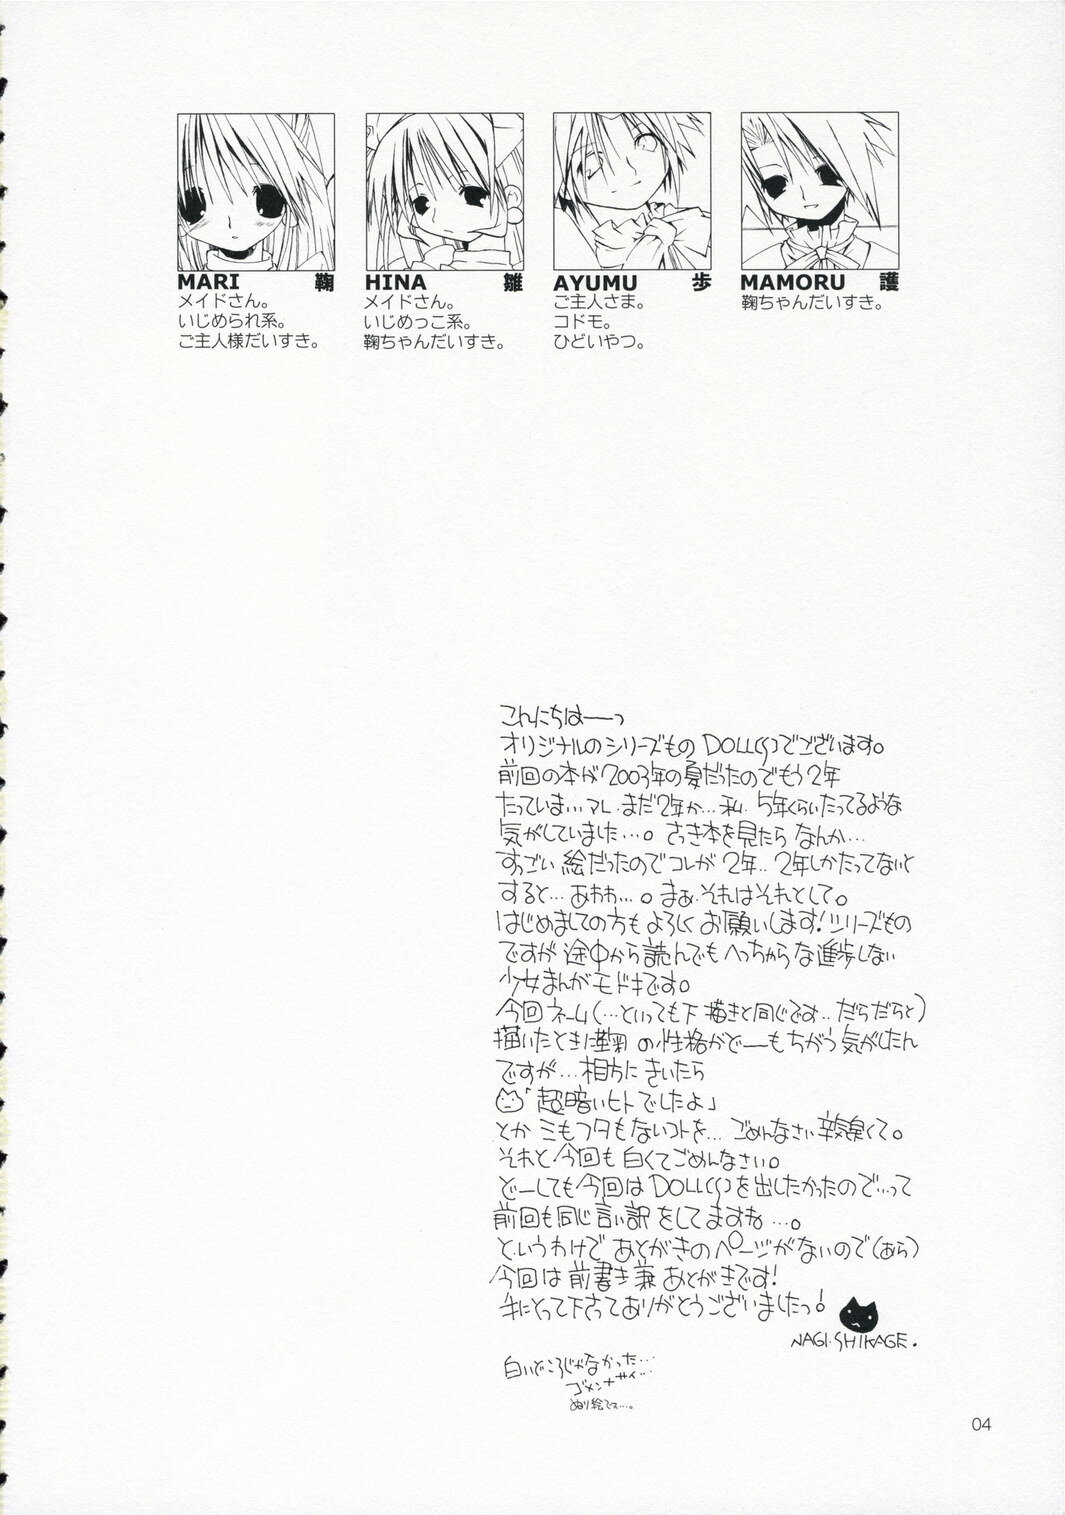 MARI 鞠
メイドさん。
いじめられ系。
ご主人様だいすき。
HINA 雛
メイドさん。
いじめっこ系。
鞠ちゃんだいすき。
AYUMU 歩
ご主人さま。
コドモ。
ひどいやつ。
MAMORU 護
鞠ちゃんだいすき。
こんにちはーっ
オリジナルのシリーズもの DOLL(S)でございます。
前回の本が2003年の夏だったのでもう2年
たっていま…アレ.まだ2年か…私.5年くらいたってるような
気がしていました…。さっき本を見たら なんか…
すっごい絵だったのでコレが2年..2年しかたってないと
すると…あわわ…。まぁ.それはそれとして。
はじめましての方もよろしくお願いします!シリーズもの
ですが途中から読んでもへっちゃらな進歩しない
少女まんがモドキです。
今回ネーム(…といっても下描きと同じです..だらだらと)
描いたときに鞠の性格がどーもちがう気がしたん
ですが…相方にきいたら
「超暗いヒトでしたよ」
とかミもフタもないコトを…ごめんなさい辛気臭くて。
それと今回も白くてごめんなさい。
どーしても今回はDOLL(S)を出したかったので…って
前回も同じ言い訳をしてますね…。
というわけであとがきのページがないので(あら)
今回は前書き兼あとがきです!
手にとって下さってありがとうございましたっ!
NAGI.SHIKAGE.
白いどころじゃなかった…
ゴメンナサイ…
ぬり絵でス…。
04